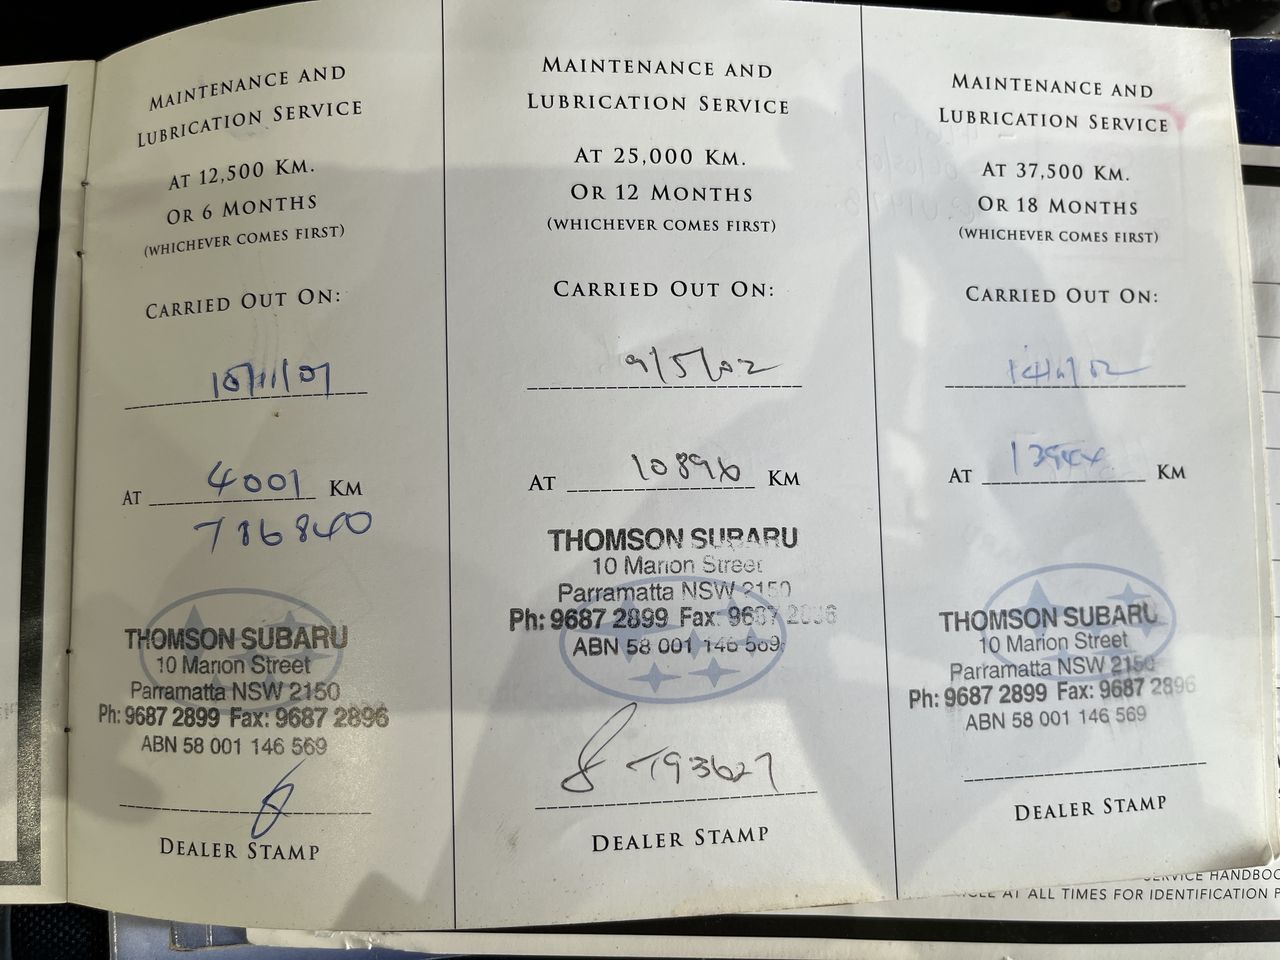 MAINTENANCE AND
LUBRICATION SERVICE
AT 12,500 KM.
OR 6 MONTHS
(WHICHEVER COMES FIRST)
CARRIED OUT ON:
AT 4001 KM
786840
THOMSON SUBARU
10 Marion Street
Parramatta NSW 2150
Ph: 9687 2899 Fax: 9687 2896
ABN 58 001 146 569
DEALER STAMP
MAINTENANCE AND
LUBRICATION SERVICE
AT 25,000 KM.
OR 12 MONTHS
(WHICHEVER COMES FIRST)
CARRIED OUT ON:
9/5/02
AT 10896 KM
THOMSON SUBARU
10 Marion Street
Parramatta NSW 2150
Ph: 9687 2899 Fax: 9687 2896
ABN 58 001 146 569
793627
DEALER STAMP
MAINTENANCE AND
LUBRICATION SERVICE
AT 37,500 KM.
OR 18 MONTHS
(WHICHEVER COMES FIRST)
CARRIED OUT ON:
AT KM
THOMSON SUBARU
10 Marion Street
Parramatta NSW 2150
Ph: 9687 2899 Fax: 9687 2896
ABN 58 001 146 569
DEALER STAMP
SERVICE
AT ALL TIMES FOR IDENTIFICATION